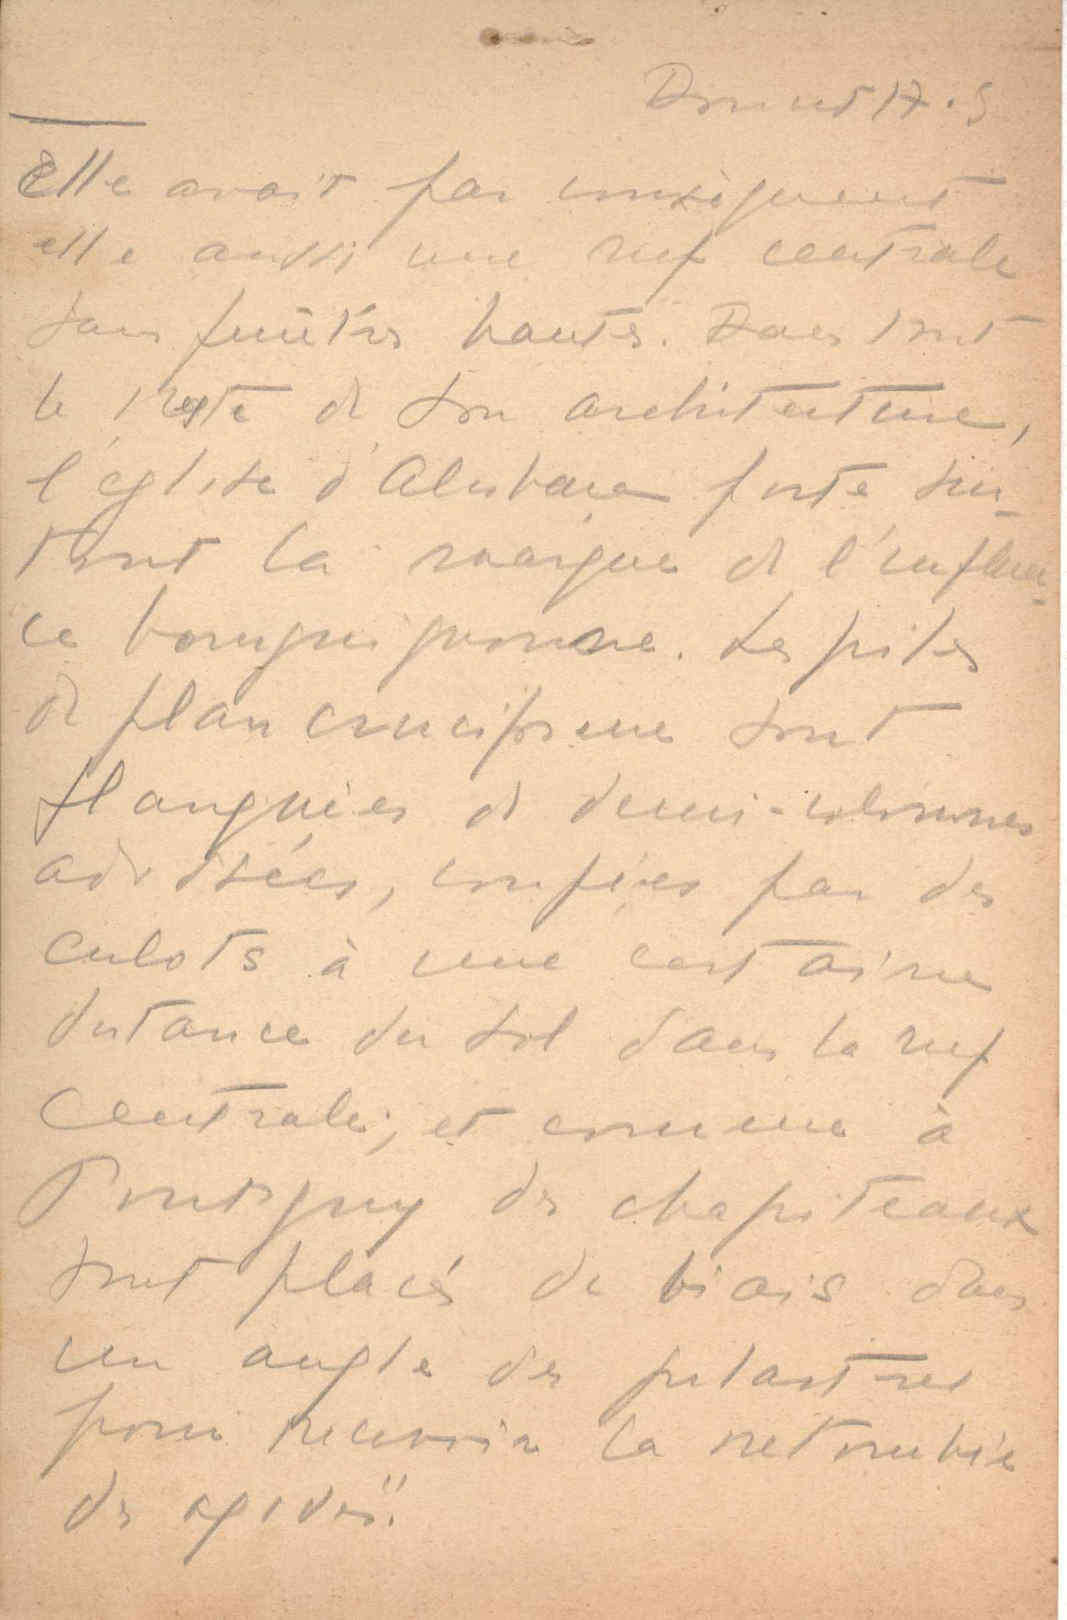 17.5
Elle avait par conséquent
elle aussi une nef centrale
sans fenêtres hautes. Dans tout
le reste de son architecture,
l'église d'Alvastra porte sur-
tout la marque de l'influen-
ce bourguignonne. Les piles
de plan cruciforme sont
flanquées de demi-colonnes
adossées, coupées par des
culots à une certaine
distance du sol dans la nef
centrale; et comme à
Pontigny des chapiteaux
sont placés de biais dans
un angle des pilastres
pour recevoir la retombée
des ogives".